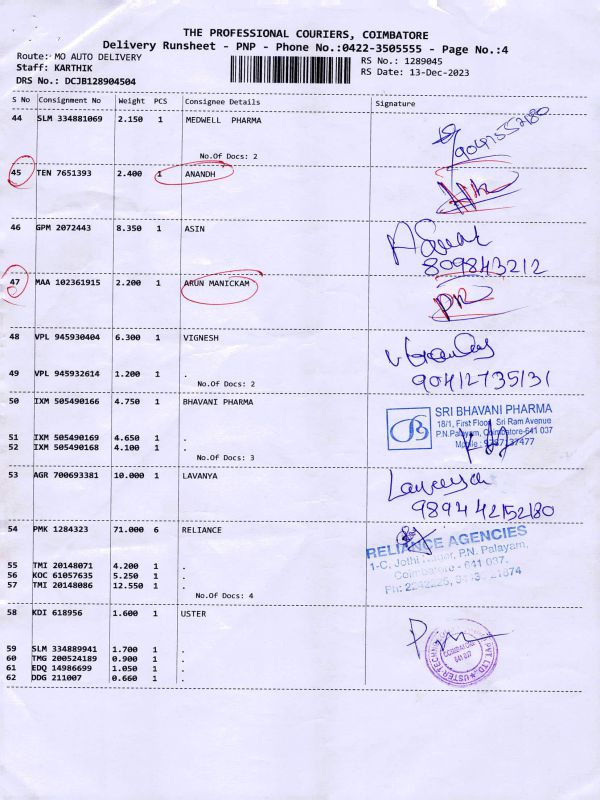 THE PROFESSIONAL COURIERS, COIMBATORE
Delivery Runsheet - PNP - Phone No.:0422-3505555 - Page No.:4
Route: MO AUTO DELIVERY
RS No.: 1289045
Staff: KARTHIK
RS Date: 13-Dec-2023
DRS No.: DCJB128904504
S No Consignment No Weight PCS Consignee Details Signature
44 SLM 334881069 2.150 1 MEDWELL PHARMA
No.Of Docs: 2
45 TEN 7651393 2.400 1 ANANDH
46 GPM 2072443 8.350 1 ASIN
809843212
47 MAA 102361915 2.200 1 ARUN MANICKAM
48 VPL 945930404 6.300 1 VIGNESH
49 VPL 945932614 1.200 1 .
No.Of Docs: 2
90412735131
50 IXM 505490166 4.750 1 BHAVANI PHARMA
SRI BHAVANI PHARMA
18/1, First Floor, Sri Ram Avenue
P.N.Palayam, Coimbatore-641 037
51 IXM 505490169 4.650 1 .
52 IXM 505490168 4.100 1 .
No.Of Docs: 3
53 AGR 700693381 10.000 1 LAVANYA
98944242152180
54 PMK 1284323 71.000 6 RELIANCE
RELIANCE AGENCIES
1-C, Jothi Nagar, P.N. Palayam,
Coimbatore - 641 037.
55 TMI 20148071 4.200 1 .
56 KOC 61057635 5.250 1 .
57 TMI 20148086 12.550 1 .
No.Of Docs: 4
58 KDI 618956 1.600 1 USTER
59 SLM 334889941 1.700 1 .
60 TMG 200524189 0.900 1 .
61 EDQ 14986699 1.050 1 .
62 DDG 211007 0.660 1 .